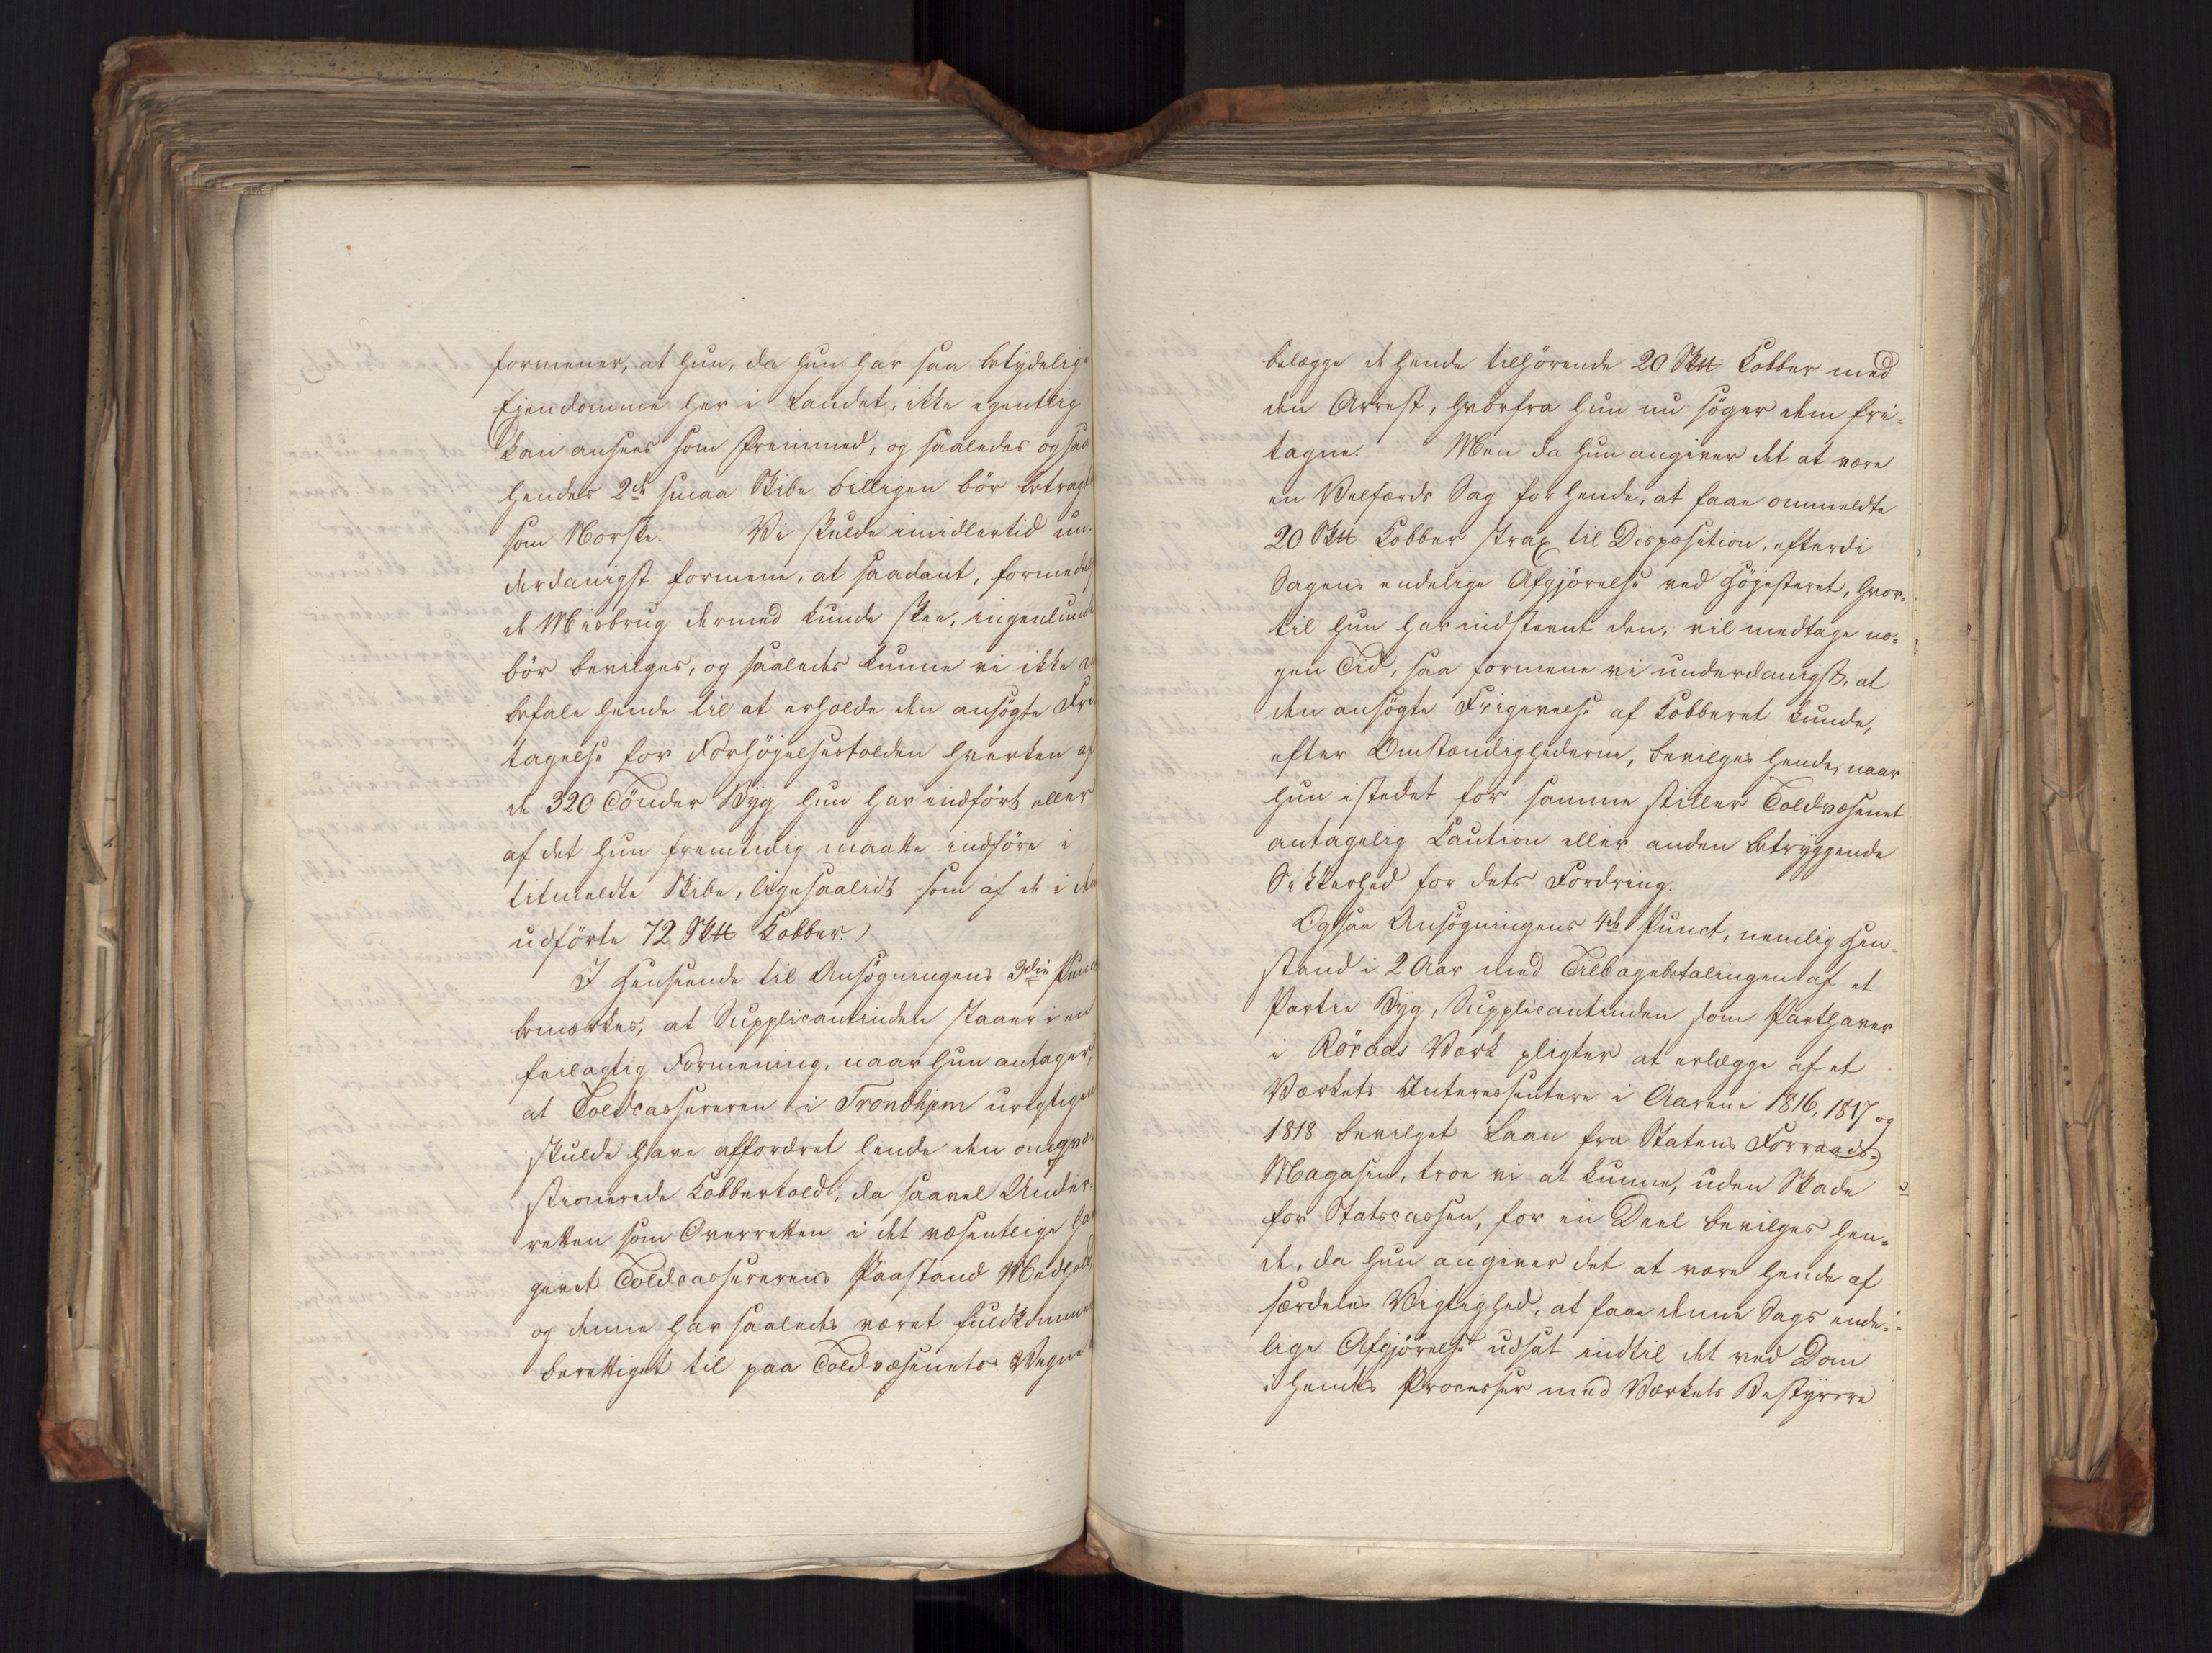 formener, at hun, da hun har saa betydelige
Ejendomme her i Landet, ikke egentlig
kan ansees som fremmed, og saaledes ogsaa
hendes 2de smaa Skibe billigen bör betragt
som Norske. Vi skulde imidlertid un-
derdanigst formene, at saadant, formedels
de Misbrug dermed kunde skee, ingenlund
bör bevilges, og saaledes kunne vi ikke an
befale hende til at erholde den ansögte Fri
tagelse for Forhöjelsestolden hverken af
de 320 Tönder Byg hun har indfört eller
af det hun fremtidig maatte indföre i
titmeldte Skibe, ligesaalidt som af de i dem
udförte 72 Sk℔ Kobber.)
I Henseende til Ansögningens 3die Punct
bemærkes, at Supplicantinden staaer i en
feilagtig Formening, naar hun antager,
at Toldcassereren i Trondhjem urigtigen
skulde have affordret hende den omqvæ-
stionerede Kobbertold, da saavel Under-
retten som Overretten i det væsentlige har
givet Toldcassererens Paastand Medhold,
og denne har saaledes været fuldkommen
berettiget til paa Toldvæsenets Vegne
belægge de hende tilhörende 20 Sk℔ Kobber med
den Arrest, hvorfra hun nu söger dem fri-
tagne. Men da hun angiver det at være
en Velfærds Sag for hende, at faae ommeldte
20 Sk℔ Kobber strax til Disposition, efterdi
Sagens endelige Afgjörelse ved Höjesteret, hvor-
til hun har indstevnt den, vil medtage no-
gen Tid, saa formene vi underdanigst, at
den ansögte Frigivelse af Kobberet kunde,
efter Omstændighederne, bevilges hende, naar
hun istedet for samme stiller Toldvæsenet
antagelig Caution eller anden betryggende
Sikkerhed for dets Fordring.
Ogsaa Ansögningens 4de Punct, nemlig Hen-
stand i 2 Aar med Tilbagebetalingen af et
Partie Byg, Supplicantinden som Parthaver
i Röraas Værk pligter at erlægge af et
Værkets Interessentere i Aarene 1816, 1817 og
1818 bevilget Laan fra Statens Forraads-
Magasin, troe vi at kunne, uden Skade
for Statscassen, for en Deel bevilges hen-
de, da hun angiver det at være hende af
særdeles Vigtighed, at faae denne Sags ende-
lige Afgjörelse udsat indtil det ved Dom
i hendes Processer med Værkets Bestyrere